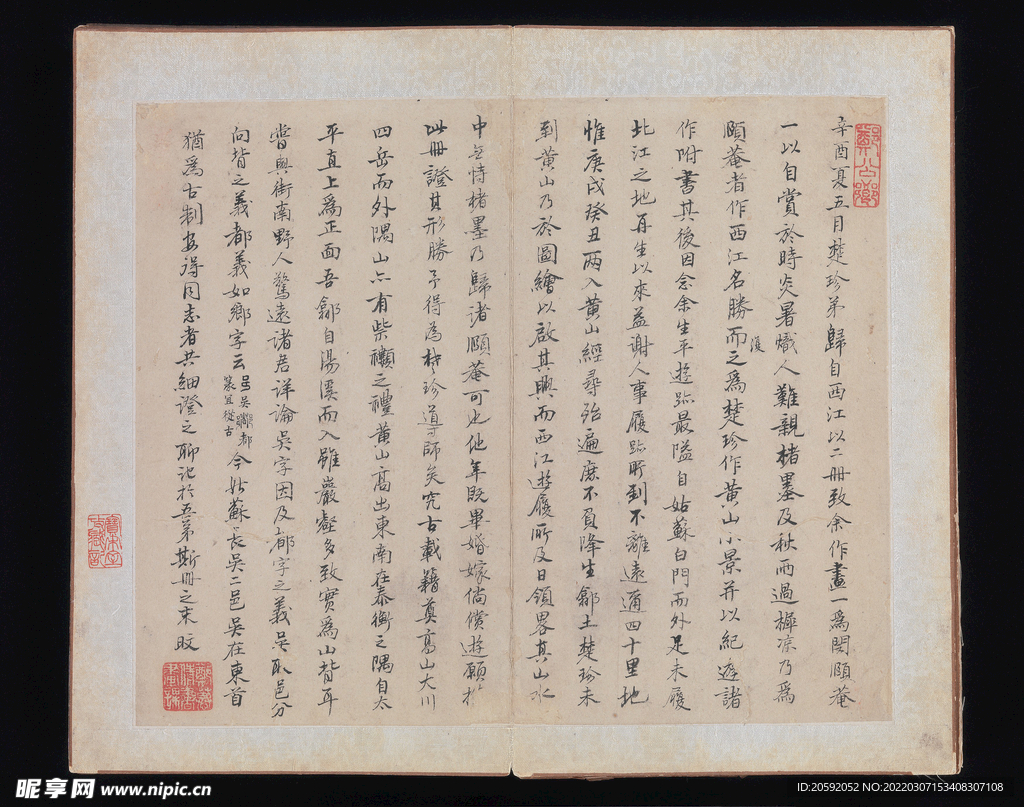 辛酉夏五月楚珍弟歸自西江以二冊致余作畫一為閔頤菴
一以自賞於時炎暑熾人難親楮墨及秋雨過樨涼乃為
頤菴者作西江名勝而之為楚珍作黃山小景并以紀遊諸
復
作附書其後因念余生平遊跡最隘自姑蘇白門而外足未履
北江之地再生以來益謝人事履跡所到不離遠邇四十里地
惟庚戌癸丑兩入黃山經尋殆遍庶不負降生鄣土楚珍未
到黃山乃於圖繪以啟其興而西江遊履所及日領畧其山水
中無恃楮墨乃歸諸頤菴可也他年既畢婚嫁倘償遊願於
此冊證其形勝予得為楚珍導師矣究古載籍奠高山大川
四岳而外隅山亦有柴禷之禮黃山高出東南在泰衡之隅自太
平直上為正面吾鄣自湯溪而入雖巖壑多致實為山背耳
嘗與街南野人驚遠諸君詳論吳字因及都字之義吳取邑分
向背之義都義如鄉字云
今姑蘇長吳二邑吳在東首
猶為古制安得同志者共細證之聊記於吾弟斯冊之末旼
鄭公鄉
昵享网 www.nipic.cn
ID:20592052 NO:20220307153408307108